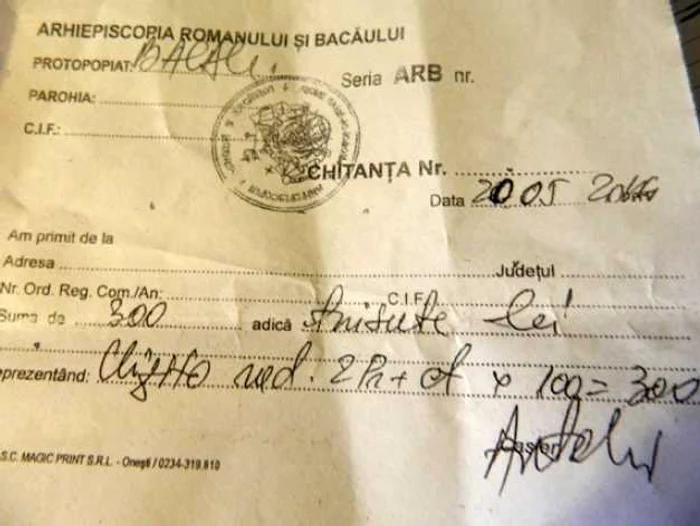 ARHIEPISCOPIA ROMANULUI ȘI BACĂULUI
PROTOPOPIAT: BACĂU
Seria ARB nr.
PAROHIA:
C.I.F.:
CHITANȚA Nr.
Data 20 05
Am primit de la
Adresa Județul
Nr. Ord. Reg. Com./An: C.I.F.
Suma de 300 adică trisute lei
eprezentând: 2 + x 100 = 300
Casier
S.C. MAGIC PRINT S.R.L. - Onești / 0234-319.810